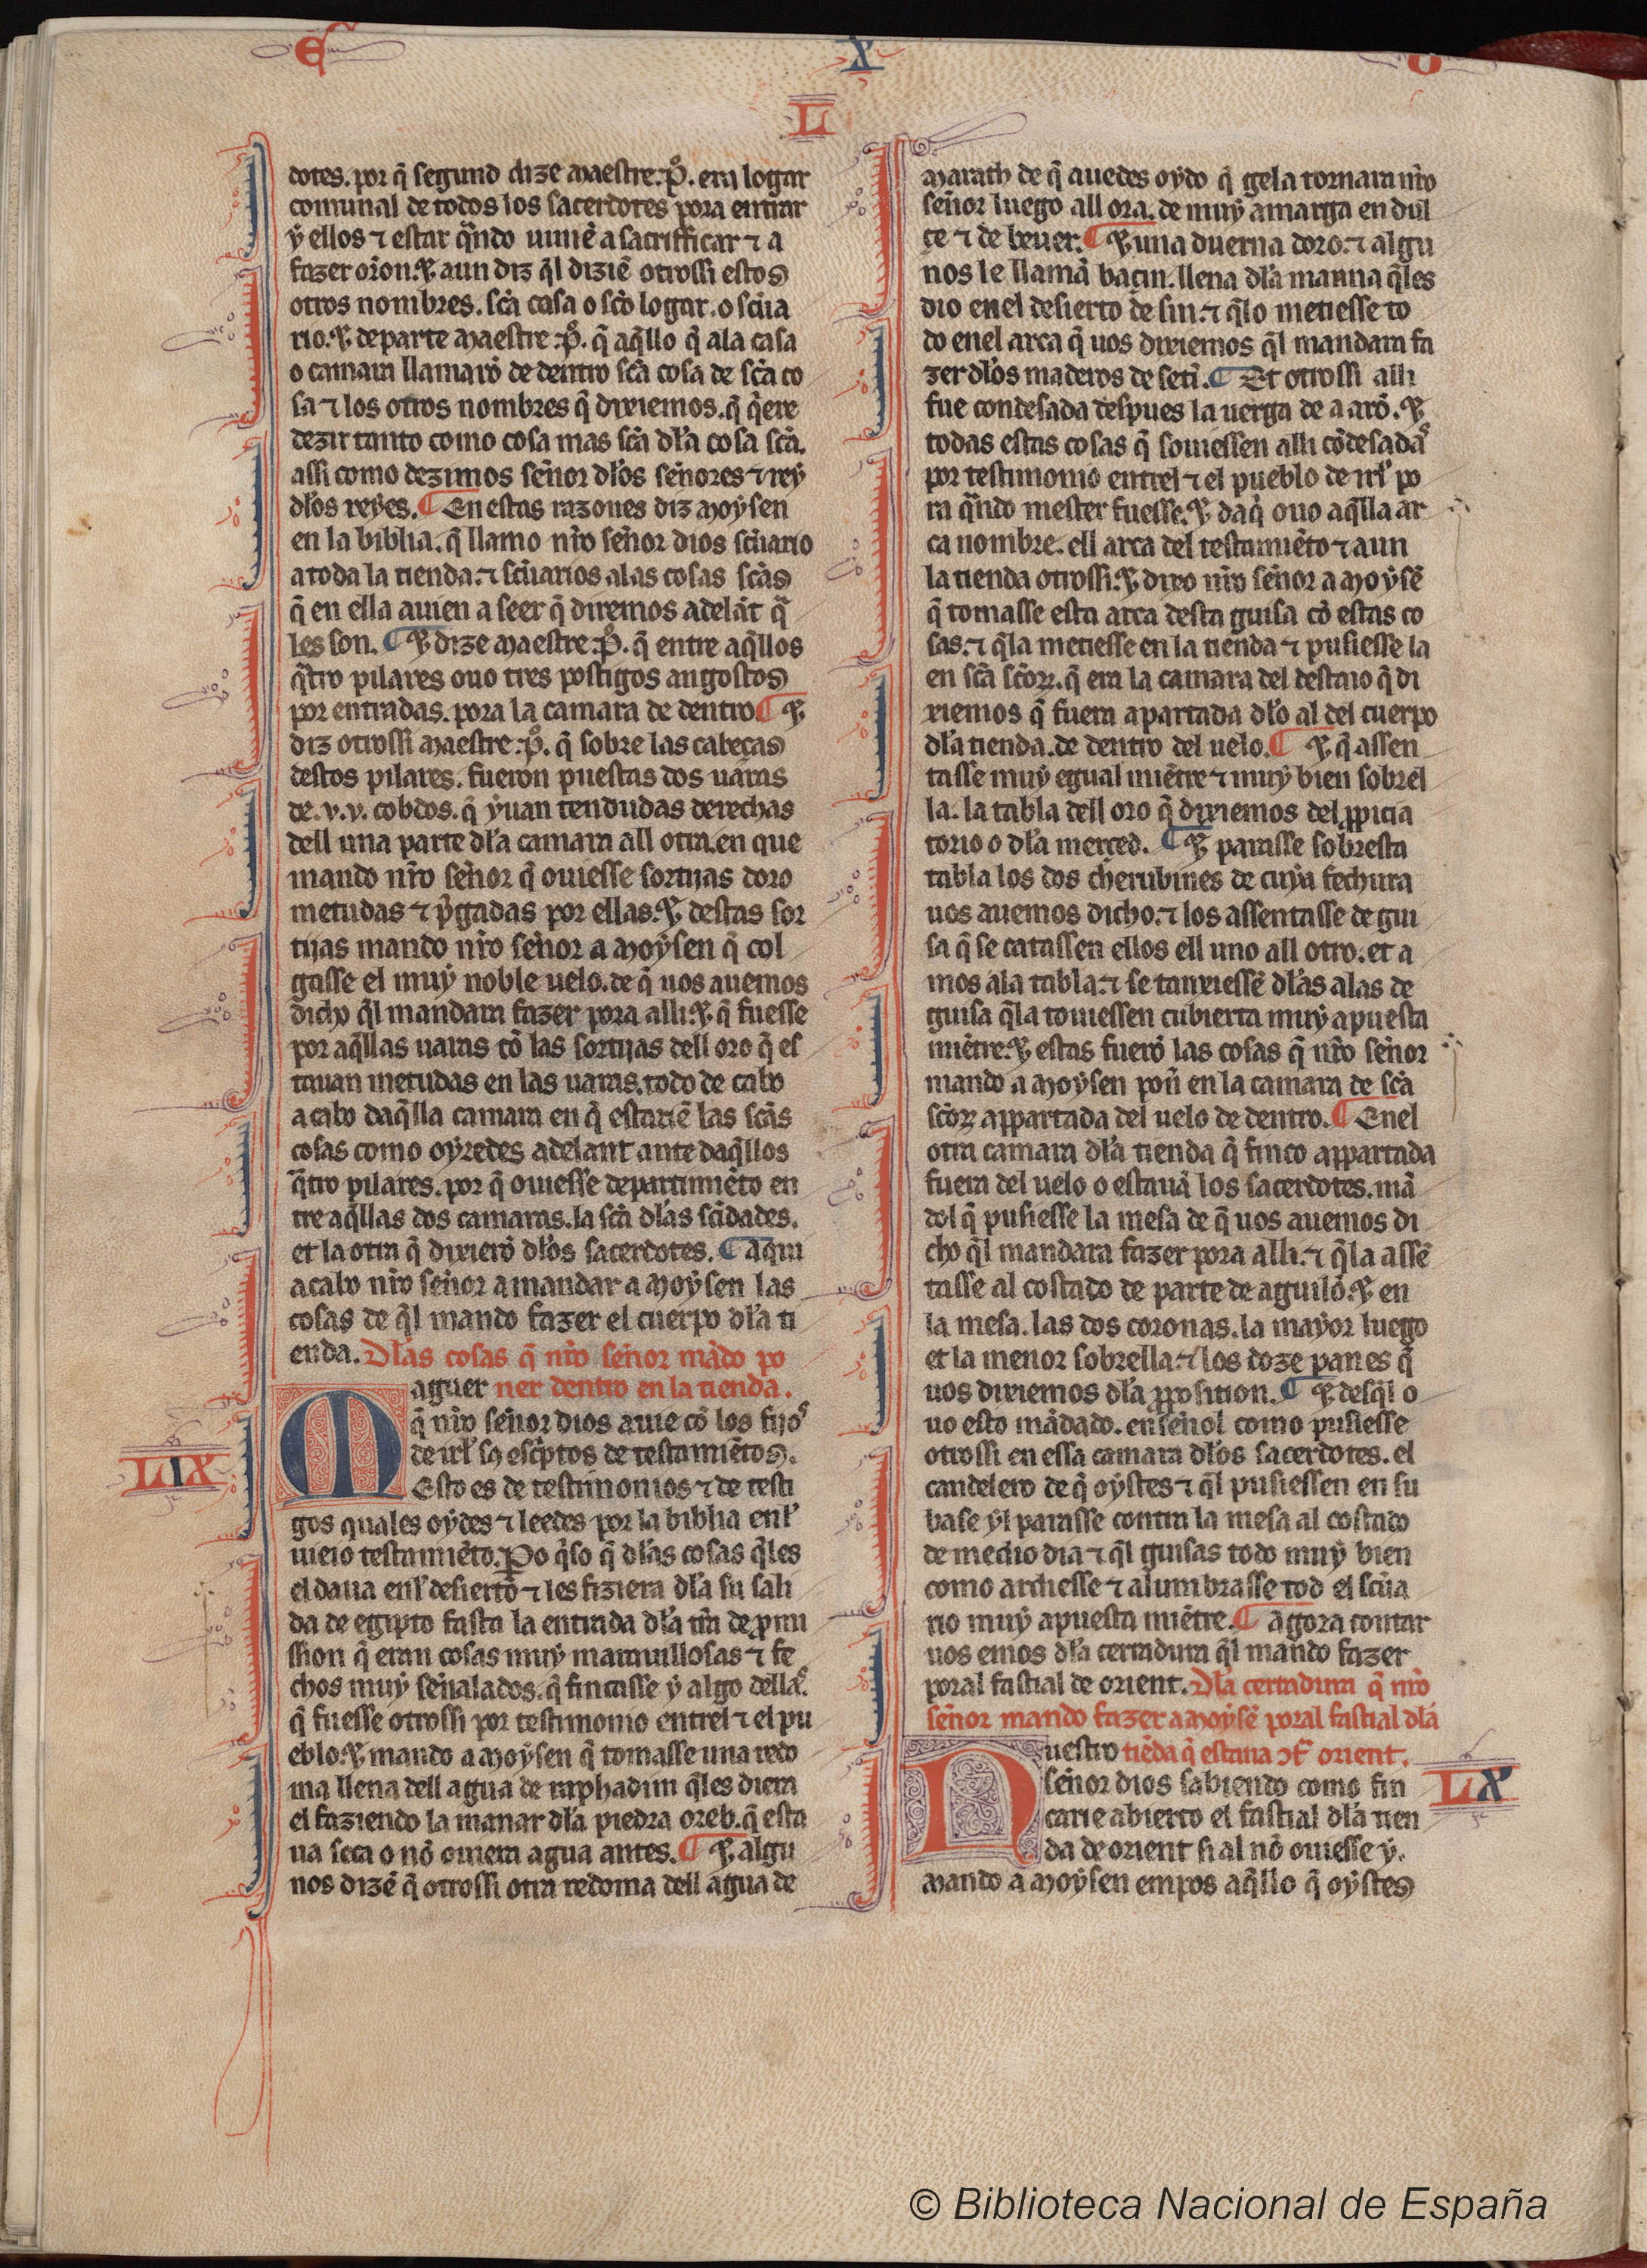 E X O
L
dotes. por q̃ segund dize Maestre .P̊. era logar
comunal de todos los sacerdotes pora entrar
ẏ ellos ⁊ estar q̃ndo uiniẽ a sacrifficar ⁊ a
fazer or̃on. ⁊ aun diz q̃l diziẽ otrossi estos
otros nombres. sc̃a casa o sc̃o logar. o sc̃ua
rio. ⁊ departe Maestre .P̊. q̃ aq̃llo q̃ ala casa
o camara llamarõ de dentro sc̃a cosa de sc̃a co
sa ⁊ los otros nombres q̃ dixiemos. q̃ q̃ere
dezir tanto como cosa mas sc̃a dł́a cosa sc̃a.
assi como dezimos sẽnor dł́os sẽnores ⁊ reẏ
dł́os reẏes. ¶ En estas razones diz Moẏsen
en la biblia. q̃ llamo nr̃o sẽnor dios sc̃uario
a toda la tienda. ⁊ sc̃uarios alas cosas sc̃as
q̃ en ella auien a seer q̃ diremos adelãt q̃
les son. ¶ ⁊ dize Maestre .P̊. q̃ entre aq̃llos
q̃tro pilares ouo tres postigos angostos
por entradas. pora la camara de dentro ¶ ⁊
diz otrossi Maestre .P̊. q̃ sobre las cabeças
destos pilares. fueron puestas dos uaras
de .v. v. cobdos. q̃ ẏuan tendudas derechas
dell una parte dł́a camara all otra. en que
mando nr̃o sẽnor q̃ ouiesse sortijas doro
metudas ⁊ p̃gadas por ellas. ⁊ destas sor
tijas mando nr̃o sẽnor a Moẏsen q̃ col
gasse el muẏ noble uelo. de q̃ uos auemos
dicho q̃l mandara fazer pora alli. ⁊ q̃ fuesse
por aq̃llas uaras cõ las sortijas dell oro q̃ es
tauan metudas en las uaras. todo de cabo
a cabo daq̃lla camara en q̃ estariẽ las sc̃as
cosas como oẏredes adelant ante daq̃llos
q̃tro pilares. por q̃ ouiesse departimiẽto en
tre aq̃llas dos camaras. la sc̃a dł́as sc̃idades.
et la otra q̃ dixierõ dł́os sacerdotes. ¶ aqui
acabo nr̃o sẽnor a mandar a Moẏsen las
cosas de q̃l mando fazer el cuerpo dł́a ti
enda. Dł́as cosas q̃ nr̃o sẽnor mãdo po
Maguer ner dentro en la tienda.
q̃ nr̃o sẽnor dios auie cõ los fijoˢ
de irł́ sꝯ esc̃ptos de testamiẽtos.
LIX
Esto es de testimonios ⁊ de testi
gos quales oẏdes ⁊ leedes por la biblia enł́
uieio testamiẽto. ꝑo q̃so q̃ dł́as cosas q̃les
el daua enł́ desierto ⁊ les fiziera dł́a su sali
da de egipto fasta la entrada dł́a tr̃a de ꝓmi
ssion q̃ eran cosas muẏ marauillosas ⁊ fe
chos muẏ sẽnalados. q̃ fincasse ẏ algo dellaˢ.
q̃ fuesse otrossi por testimonio entrel ⁊ el pu
eblo. ⁊ mando a Moẏsen q̃ tomasse una redo
ma llena dell agua de raphadim q̃les diera
el faziendo la manar dł́a piedra oreb. q̃ esta
ua seca o nõ ouiera agua antes. ¶ ⁊ algu
nos dizẽ q̃ otrossi otra redoma dell agua de
Marath de q̃ auedes oẏdo q̃ gela tornara nr̃o
sẽnor luego all ora. de muẏ amarga en dul
çe ⁊ de beuer. ¶ ⁊ una duerna doro. ⁊ algu
nos le llamã bacin. llena dł́a manna q̃les
dio en el desierto de sin. ⁊ q̃lo metiesse to
do en el arca q̃ uos dixiemos q̃l mandara fa
zer dł́os maderos de setĩ. ¶ Et otrossi alli
fue condesada despues la uerga de aarõ. ⁊
todas estas cosas q̃ souiessen alli cõdesadaˢ
por testimonio entrel ⁊ el pueblo de irł́ po
ra q̃ndo mester fuesse. ⁊ daq̃ ouo aq̃lla ar
ca nombre. ell arca del testamiẽto ⁊ aun
la tienda otrossi. ⁊ dixo nr̃o sẽnor a Moẏsẽ
q̃ tomasse esta arca desta guisa cõ estas co
sas. ⁊ q̃la metiesse en la tienda ⁊ pusiesse la
en sc̃a sc̃oꝝ. q̃ era la camara del destaio q̃ di
xiemos q̃ fuera apartada dł́o al del cuerpo
dł́a tienda. de dentro del uelo. ¶ ⁊ q̃ assen
tasse muẏ egual miẽtre ⁊ muẏ bien sobrel
la. la tabla dell oro q̃ dixiemos del ꝓpicia
torio o dł́a merced. ¶ ⁊ parasse sobresta
tabla los dos cherubines de cuẏa fechura
uos auemos dicho. ⁊ los assentasse de gui
sa q̃ se catassen ellos ell uno all otro. et a
mos ala tabla. ⁊ se tanxiessẽ dł́as alas de
guisa q̃la touiessen cubierta muẏ apuesta
miẽtre. ⁊ estas fuerõ las cosas q̃ nr̃o sẽnor
mando a Moẏsen poñ en la camara de sc̃a
sc̃oꝝ appartada del uelo de dentro. ¶ En el
otra camara dł́a tienda q̃ finco appartada
fuera del uelo o estauã los sacerdotes. mã
dol q̃ pusiesse la mesa de q̃ uos auemos di
cho q̃l mandara fazer pora alli. ⁊ q̃la assẽ
tasse al costado de parte de aguilõ. ⁊ en
la mesa. las dos coronas. la maẏor luego
et la menor sobrella. ⁊ los doze panes q̃
uos dixiemos dł́a ꝓposition. ¶ ⁊ desq̃l o
uo esto mãdado. ensẽnol como pusiesse
otrossi en essa camara dł́os sacerdotes. el
candelero de q̃ oẏstes ⁊ q̃l pusiessen en su
base ẏl parasse contra la mesa al costado
de medio dia ⁊ q̃l guisas todo muẏ bien
como ardiesse ⁊ alumbrasse tod el sc̃ua
rio muẏ apuesta miẽtre. ¶ agora contar
uos emos dł́a cerradura q̃l mando fazer
poral fastial de orient. Dł́a cerradura q̃ nr̃o
sẽnor mando fazer a Moẏsẽ poral fastial dł́a
Nuestro tiẽda q̃ estaua ↄt̃ orient.
sẽnor dios sabiendo como fin
LX
carie abierto el fastial dł́a tien
da de orient si al nõ ouiesse ẏ.
Mando a Moẏsen empos aq̃llo q̃ oẏstes
© Biblioteca Nacional de España